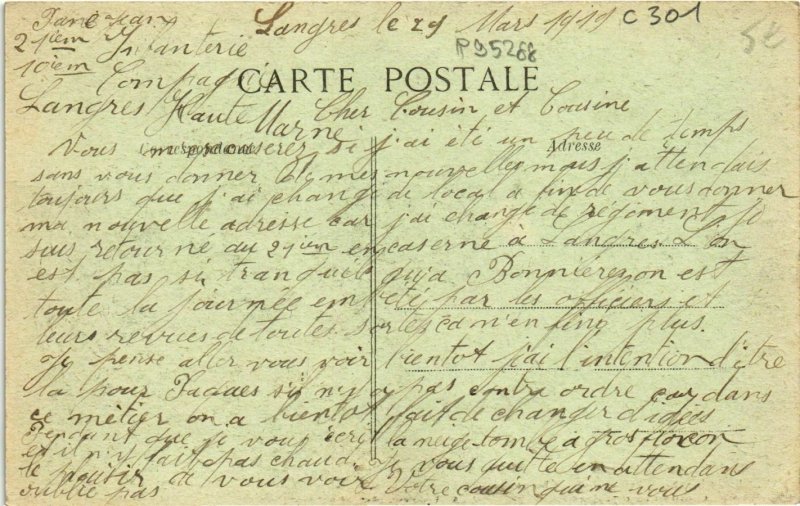 Langres le 29 Mars 1919 C 301
P95268
52
21iem Infanterie
10iem Compagnie
CARTE POSTALE
Langres Haute Marne
Cher Cousin et Cousine
Correspondance
Adresse
Vous m'escuserez si j'ai été un peu de temps
sans vous donner de mes nouvelles mais j'attendais
toujours que j'ai change de local a fin de vous donner
ma nouvelle adresse car j'ai change de régiment je
suis retourné au 21iem en caserne à Langres L'on
est pas si tranquile qu'a Bonnières on est
toute la journée embété par les officiers et
leurs revues de toutes sortes ca n'en fini plus.
Je pense aller vous voir bientot j'ai l'intention d'être
la pour Paques s'il n'y a pas contre ordre car dans
ce métier on a bientot fait de changer d'idées
Pendant que je vous écri la neige tombe a gros flocon
et il n'y fait pas chaud je vous quitte en attendant
le plaisir de vous voir Votre cousin qui ne vous
oublie pas